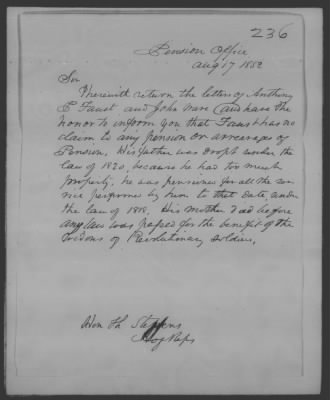 236
Pension Office
Aug 17 1852
Sir
I herewith return the letters of Anthony
P Faust and John Ware and have the
honor to inform you that Faust has no
claim to any pension or arrearages of
Pension. His father was dropt under the
law of 1820, because he had too much
property; he was pensioned for all the ser
vice performed by him to that date, under
the law of 1818. His mother died before
any law was passed for the benefit of the
Widows of Revolutionary soldiers.
Hon Th Stephens
Ho of Reps